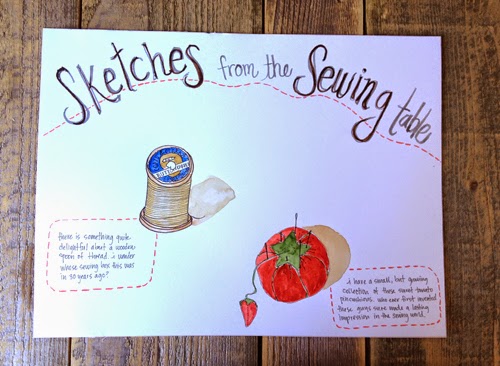 Sketches from the Sewing table
there is something quite
delightful about a wooden
spool of thread. i wonder
whose sewing box this was
in 30 years ago?
i have a small, but growing
collection of these sweet tomato
pincushions. who ever first invented
these guys sure made a lasting
impression in the sewing world.